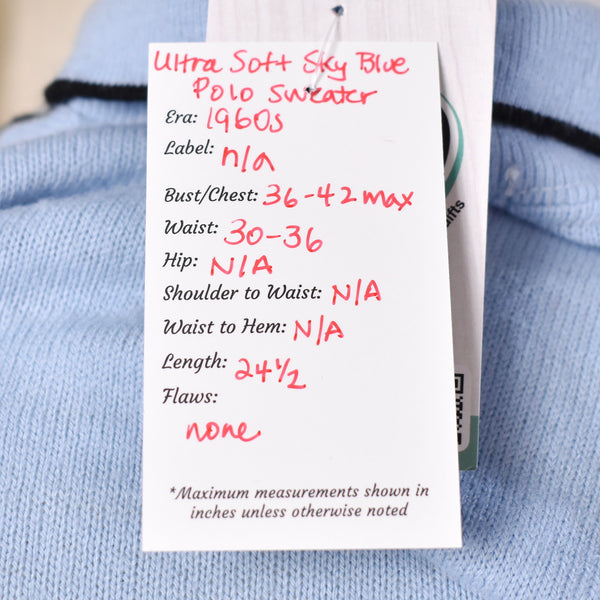 Ultra Soft Sky Blue
Polo Sweater
Era: 1960s
Label: n/a
Bust/Chest: 36-42 max
Waist: 30-36
Hip: N/A
Shoulder to Waist: N/A
Waist to Hem: N/A
Length: 24 1/2
Flaws:
none
*Maximum measurements shown in
inches unless otherwise noted